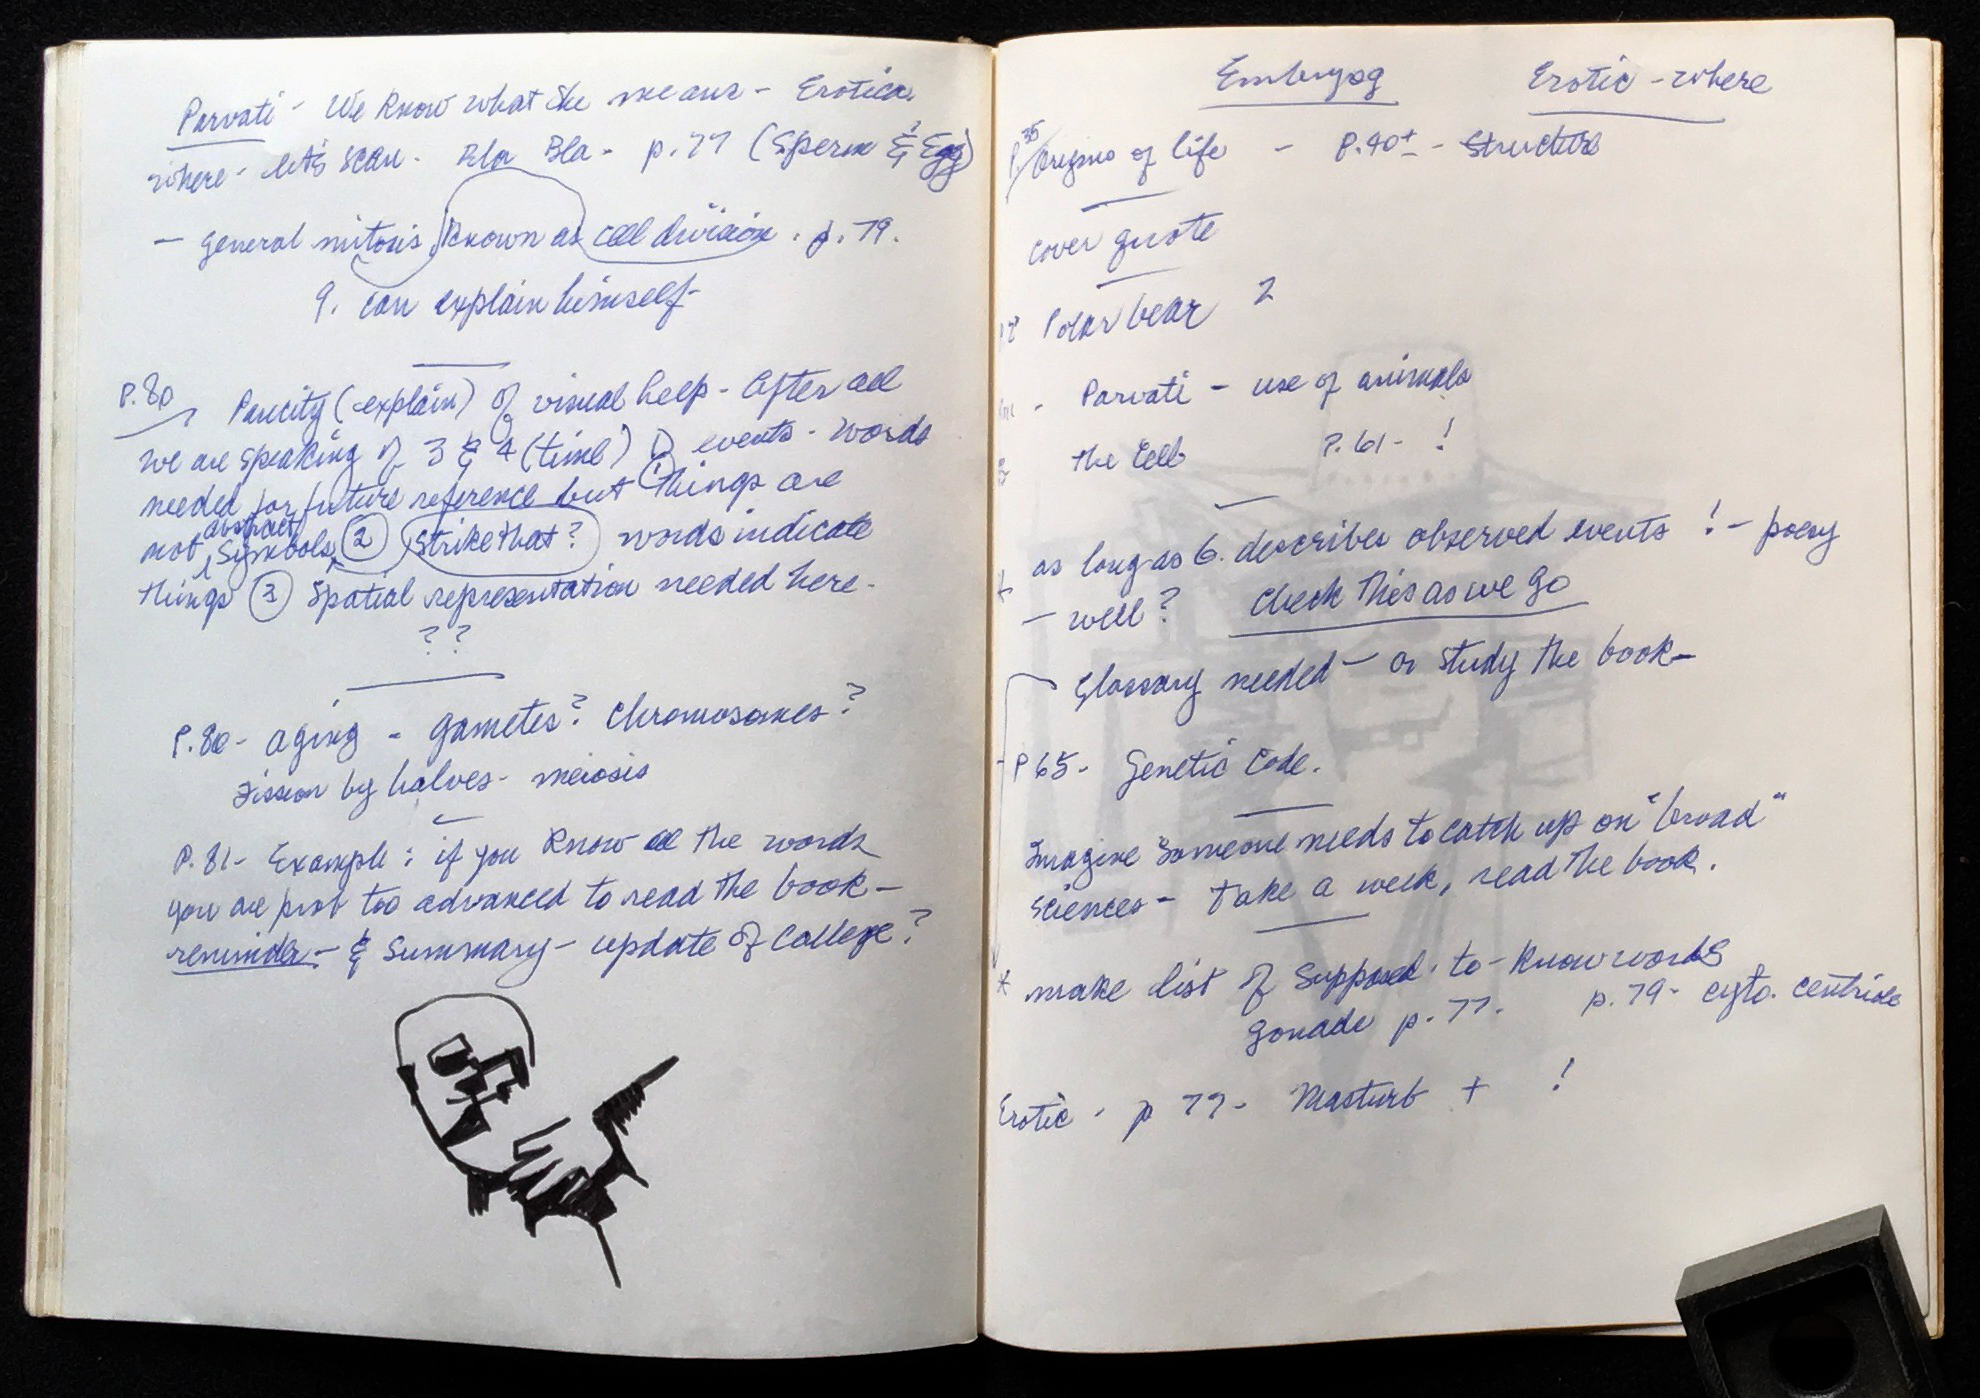 Parvati - We know what she means - Erotica.
where - let's scan - Bla Bla - p. 77 (Sperm & Egg)
— general mitosis known as cell division. p. 79.
9. can explain himself -
P. 80 Paucity (explain) of visual help - After all
we are speaking of 3 & 4 (time) D events - words
needed for future reference but (1) things are
not abstract symbols (2) (Strike that?) words indicate
things (3) Spatial representation needed here -
? ?
P. 80 - aging - gametes? Chromosomes?
Fission by halves - meiosis
P. 81 - Example: if you know all the words
you are prob too advanced to read the book -
reminder - & Summary - update of College?
Embryog Erotic - where
P. 35 Origins of life - P. 40± - Structure
cover quote
Polar bear 2
- Parvati - use of animals
the Cell P. 61 - !
as long as G. describes observed events ! - poesy
- well? Check this as we go
Glossary needed - or study the book -
- P 65 - Genetic Code.
Imagine someone needs to catch up on "broad"
sciences - take a week, read the book.
* make list of supposed - to - know words
Gonads p. 77. p. 79 - cyto. centriole
Erotic - p 77 - Masturb + !